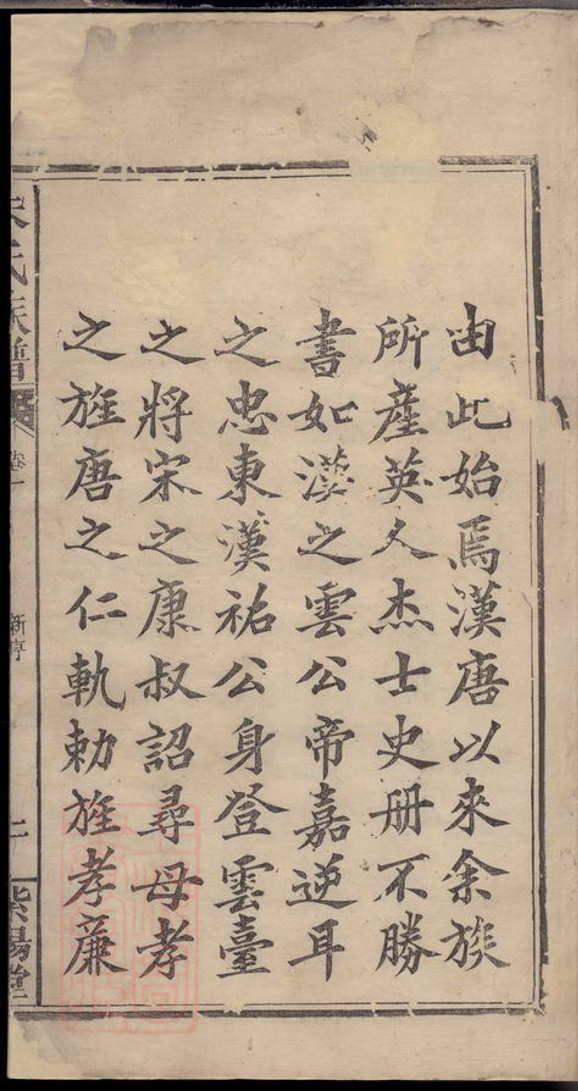 由此始焉漢唐以來余族
所產英人杰士史册不勝
書如漢之雲公帝嘉逆耳
之忠東漢祐公身登雲臺
之將宋之康叔詔尋母孝
之旌唐之仁軌勅旌孝廉
朱氏族譜
卷一
新淳
二
紫陽堂